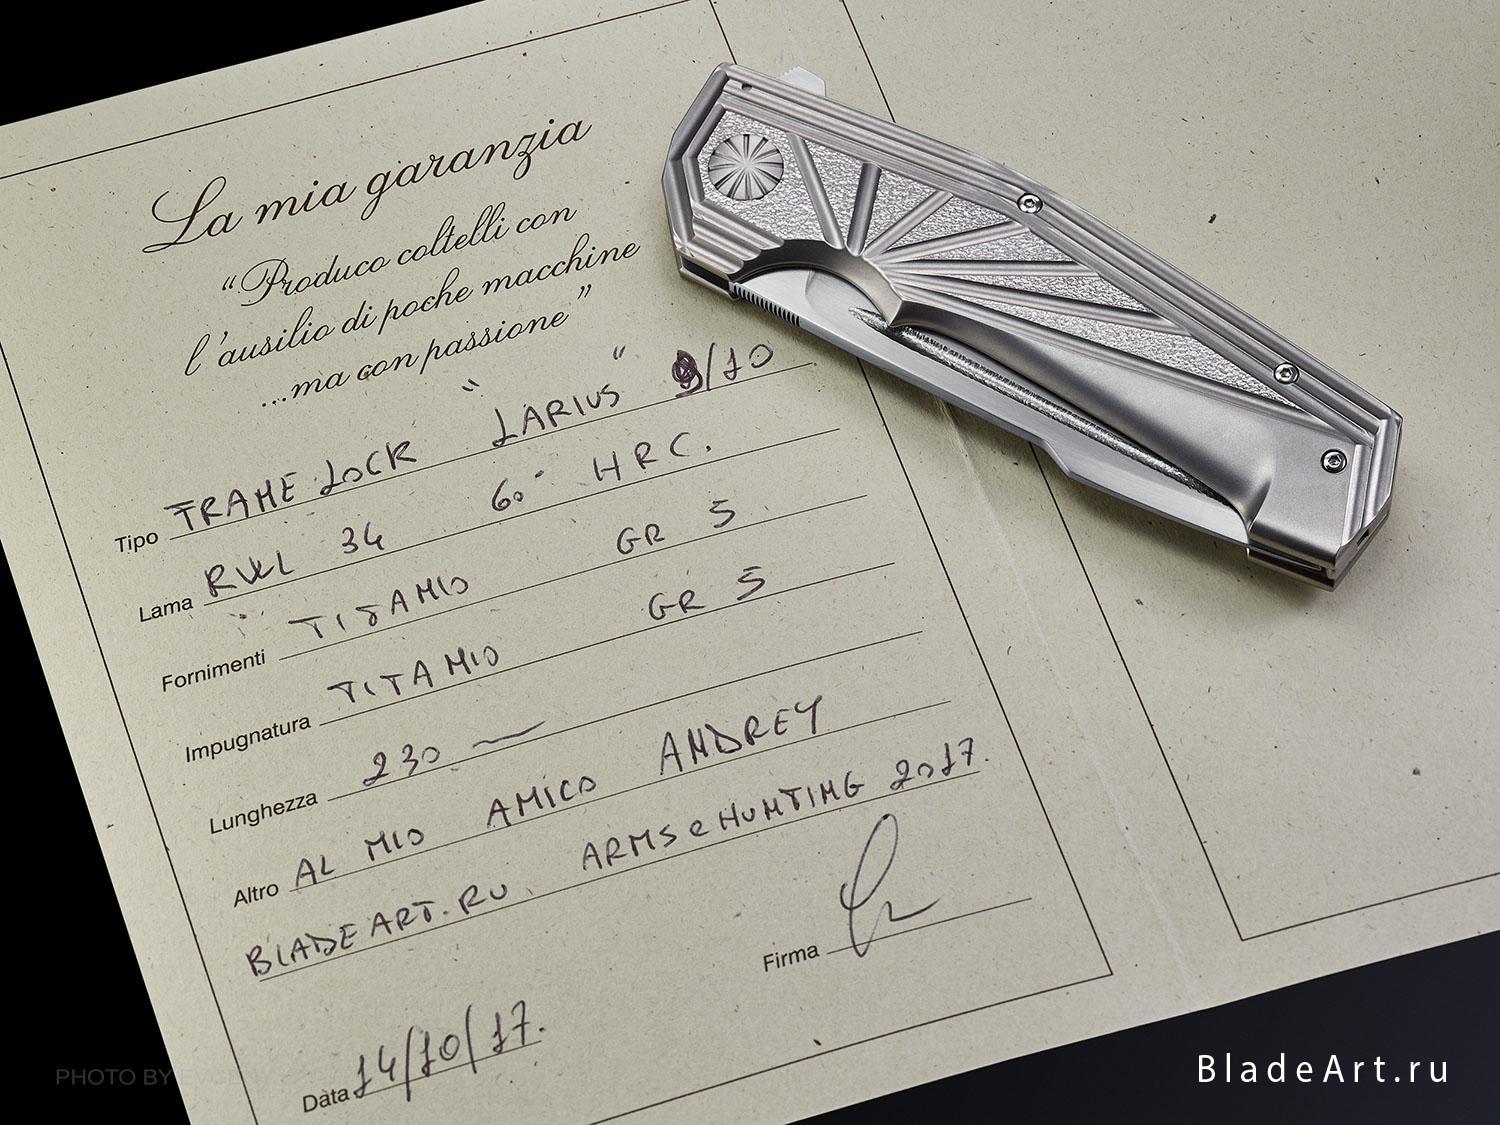 La mia garanzia
“Produco coltelli con
l'ausilio di poche macchine
...ma con passione”
Tipo FRAME LOCK “LARIUS” 9/10
Lama RWL 34 60° HRC.
Fornimenti TITANIO GR 5
Impugnatura TITANIO GR 5
Lunghezza 230 —
Altro AL MIO AMICO ANDREY
BLADEART.RU ARMS e HUNTING 2017.
Firma
Data 14/10/17.
BladeArt.ru
PHOTO BY EVGENY